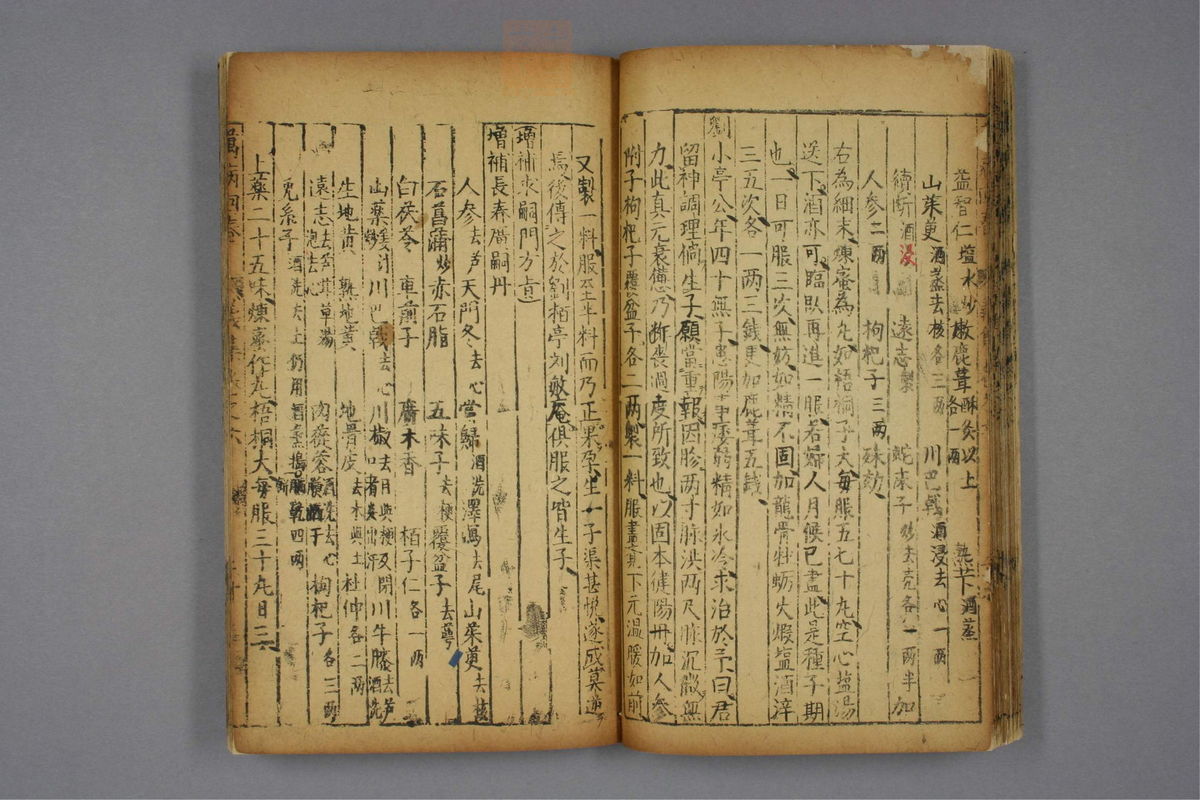 益智仁塩水炒嫩鹿茸酥灸以上各一两 熟芐酒蒸
山茱萸酒蒸去核各三两 川巴戟酒浸去心一两
續断酒浸 遠志製 蛇床子炒去壳各一两半加
人参二两 枸杞子三两 殊効
右為細末煉蜜為丸如梧桐子大每服五七十丸空心塩湯
送下酒亦可臨臥再進一服若婦人月候已盡此是種子期
也一日可服三次無妨如精不固加龍骨牡蛎火煅塩酒淬
三五次各一两三錢更加鹿茸五錢
劉小亭公年四十無子患陽事痿弱精如氷冷求治於予曰君
留神調理倘生子願當重報因胗两寸脉洪两尺脉沉微無
力此真元衰憊乃斵喪過度所致也以固本健陽丹加人参
附子枸杞子覆盆子各二两製一料服盡其下元温暖如前
又製一料服至半料而乃正果孕生一子渠甚悦遂成莫逆
焉後傳之於劉栢亭刘敏庵俱服之皆生子
增補求嗣門方
增補長春廣嗣丹
人参去芦天門冬去心當歸酒洗澤瀉去尾山茱萸去核
石菖蒲炒赤石脂 五味子去梗覆盆子去萼
白茯苓 車前子 廣木香 栢子仁各一两
山藥 川巴戟去心川椒去目與梗及閉口者炒出汗川牛膝去芦酒洗
生地黄 熟地黄 地骨皮去木與土杜仲各二两
遠志去芦甘草湯泡去心 肉蓯蓉 枸杞子各三两
兎糸子酒洗去土仍用 四两
上藥二十五味煉蜜作丸梧桐大每服三十丸日三